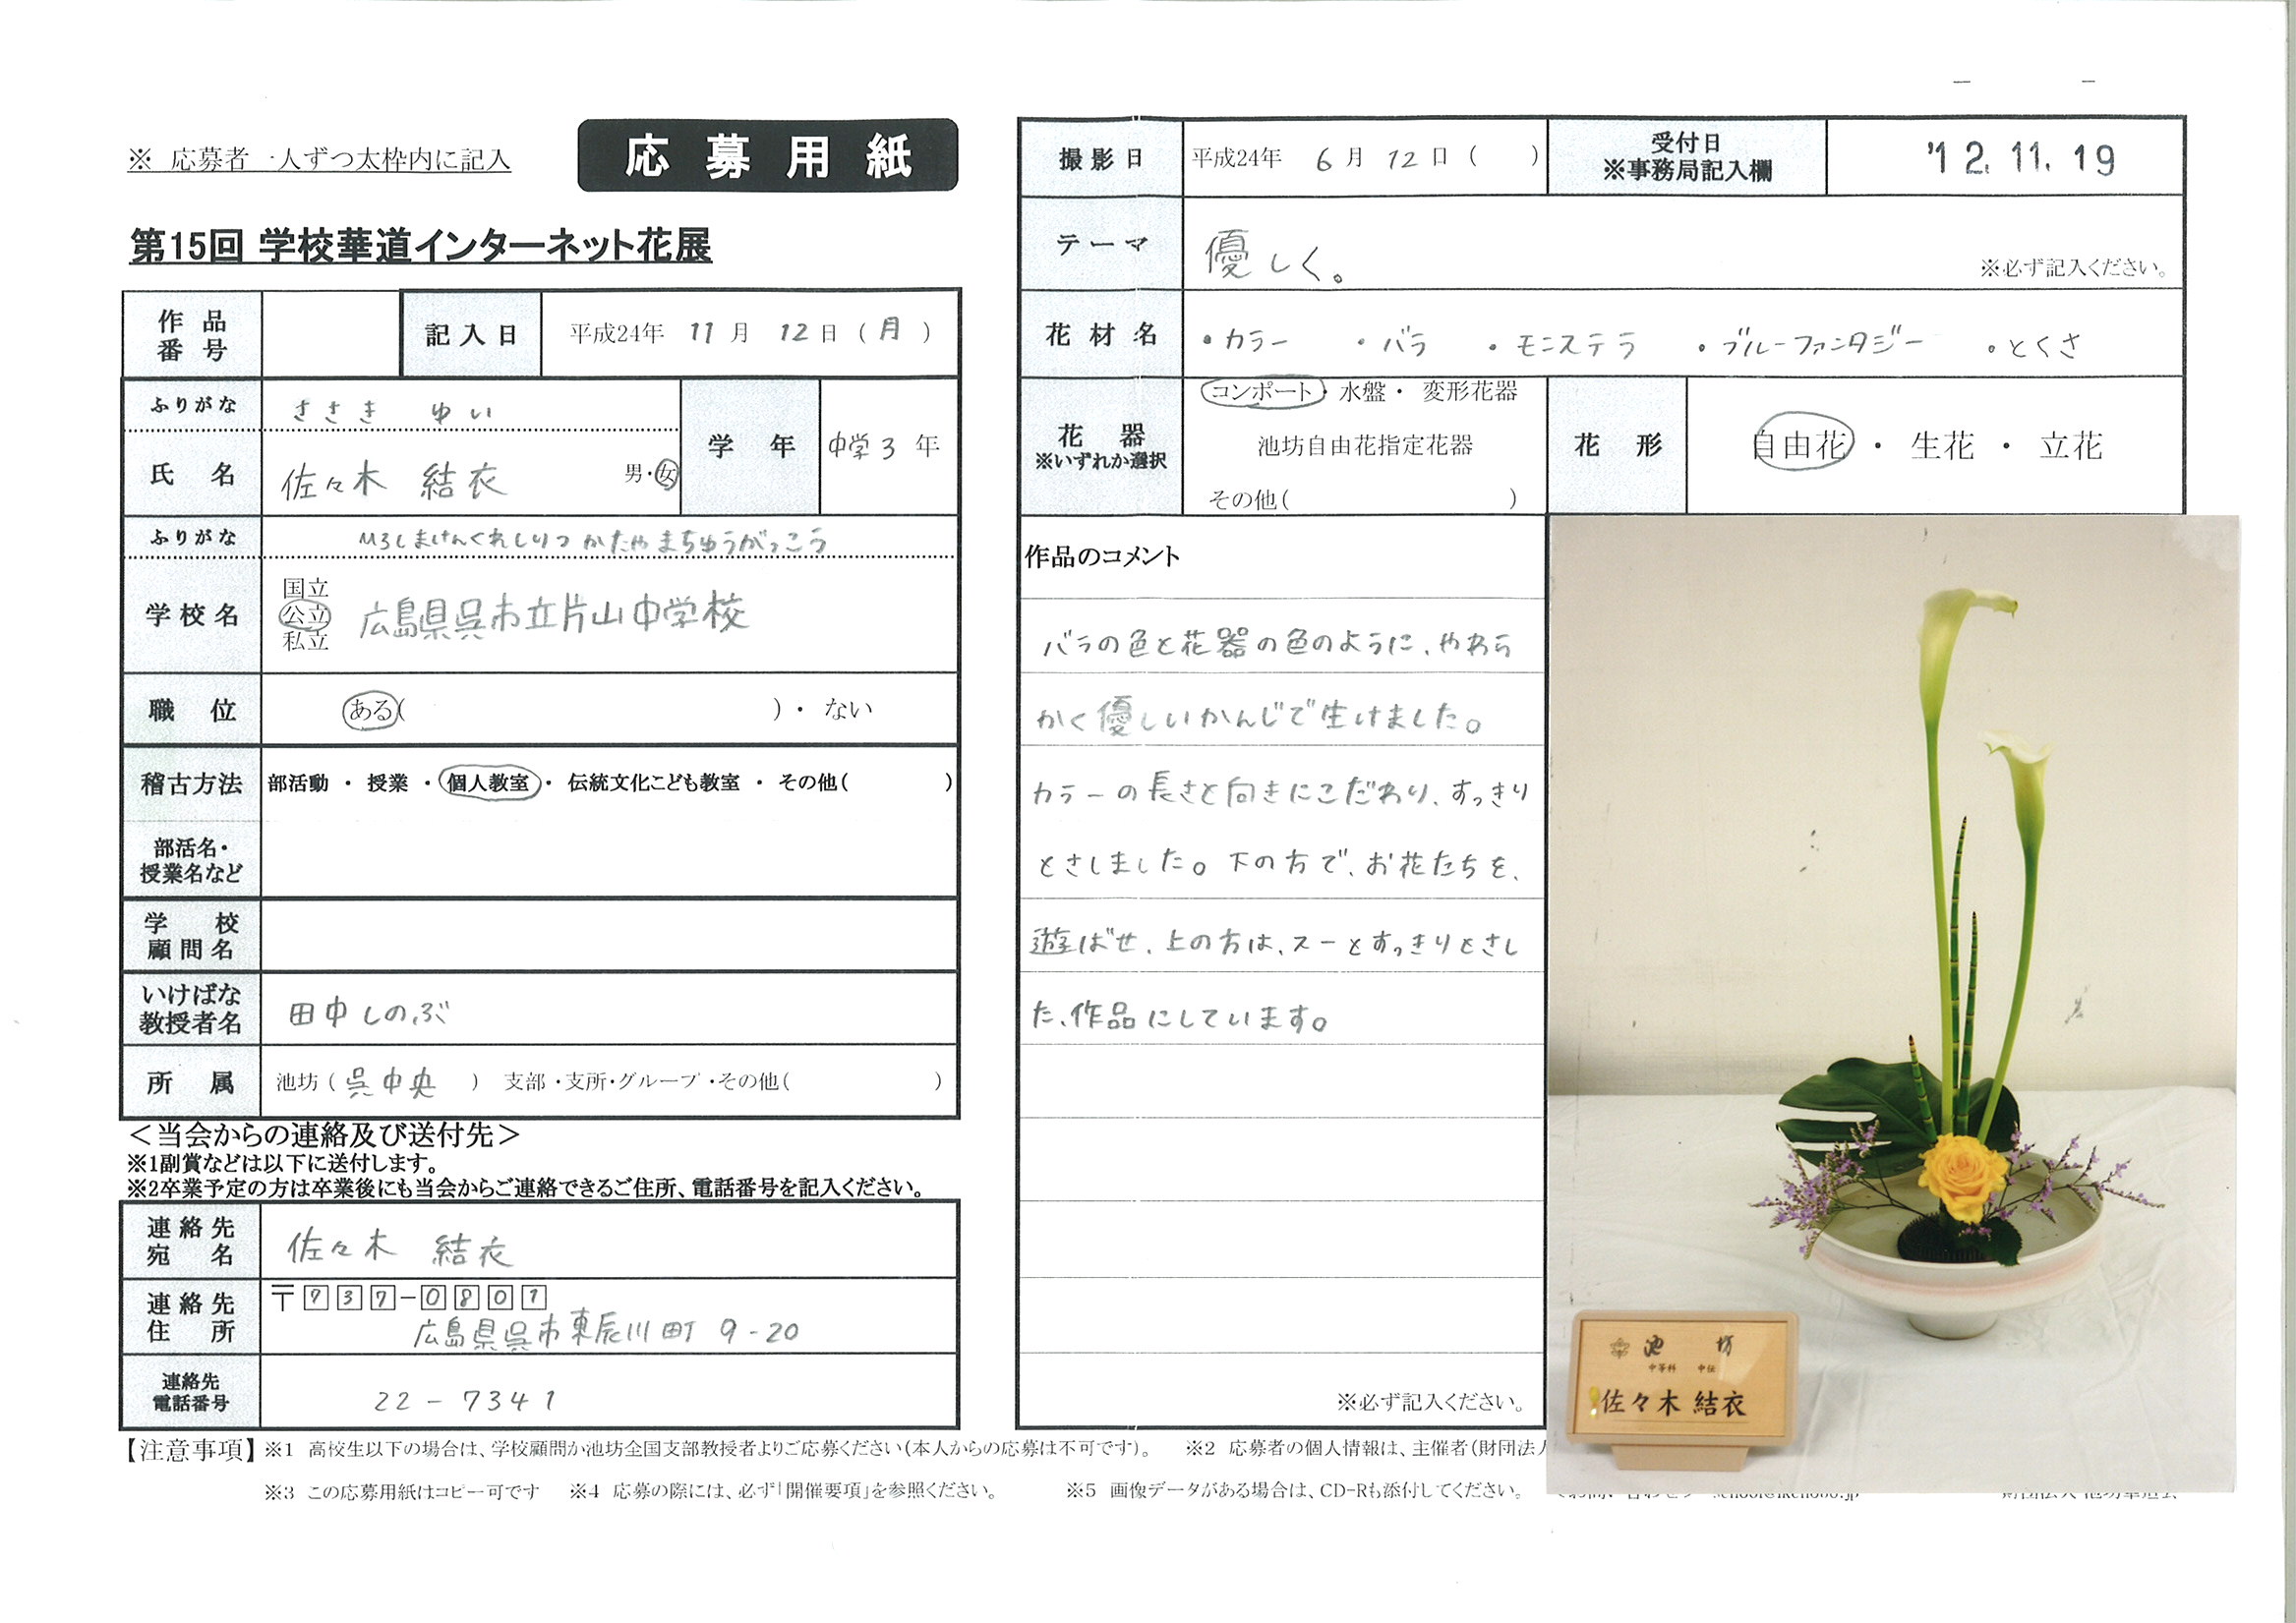 ※ 応募者 一人ずつ太枠内に記入
応募用紙
第15回 学校華道インターネット花展
作品番号
記入日 平成24年 11月 12日 (月)
ふりがな ささき ゆい
氏名 佐々木 結衣 男・女
学年 中学3年
ふりがな ひろしまけんくれしりつ かたやまちゅうがっこう
学校名 国立 公立 私立 広島県呉市立片山中学校
職位 ある( )・ ない
稽古方法 部活動 ・ 授業 ・ 個人教室 ・ 伝統文化こども教室 ・ その他( )
部活名・授業名など
学校顧問名
いけばな教授者名 田中しのぶ
所属 池坊 ( 呉中央 ) 支部・支所・グループ・その他( )
<当会からの連絡及び送付先>
※1副賞などは以下に送付します。
※2卒業予定の方は卒業後にも当会からご連絡できるご住所、電話番号を記入ください。
連絡先宛名 佐々木 結衣
連絡先住所 〒737-0801
広島県呉市東辰川町 9-20
連絡先電話番号 22-7341
撮影日 平成24年 6月 12日 ( )
受付日 ※事務局記入欄 '12.11.19
テーマ 優しく。 ※必ず記入ください。
花材名 ・カラー ・バラ ・モンステラ ・ブルーファンタジー ・とくさ
花器 ※いずれか選択 コンポート・水盤・ 変形花器
池坊自由花指定花器
その他( )
花形 自由花 ・ 生花 ・ 立花
作品のコメント
バラの色と花器の色のように、やわら
かく優しいかんじで生けました。
カラーの長さと向きにこだわり、すっきり
とさしました。下の方で、お花たちを、
遊ばせ、上の方は、スーとすっきりとさし
た、作品にしています。
※必ず記入ください。
池坊
中等科 中伝
佐々木 結衣
【注意事項】 ※1 高校生以下の場合は、学校顧問か池坊全国支部教授者よりご応募ください(本人からの応募は不可です)。 ※2 応募者の個人情報は、主催者(財団法人
※3 この応募用紙はコピー可です ※4 応募の際には、必ず「開催要項」を参照ください。 ※5 画像データがある場合は、CD-Rも添付してください。